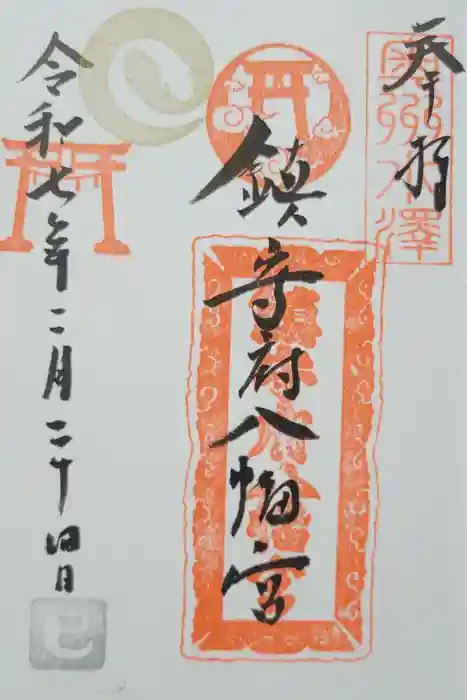 奉拝
奥州水澤
鎮守府八幡宮
令和七年二月二十四日
巳